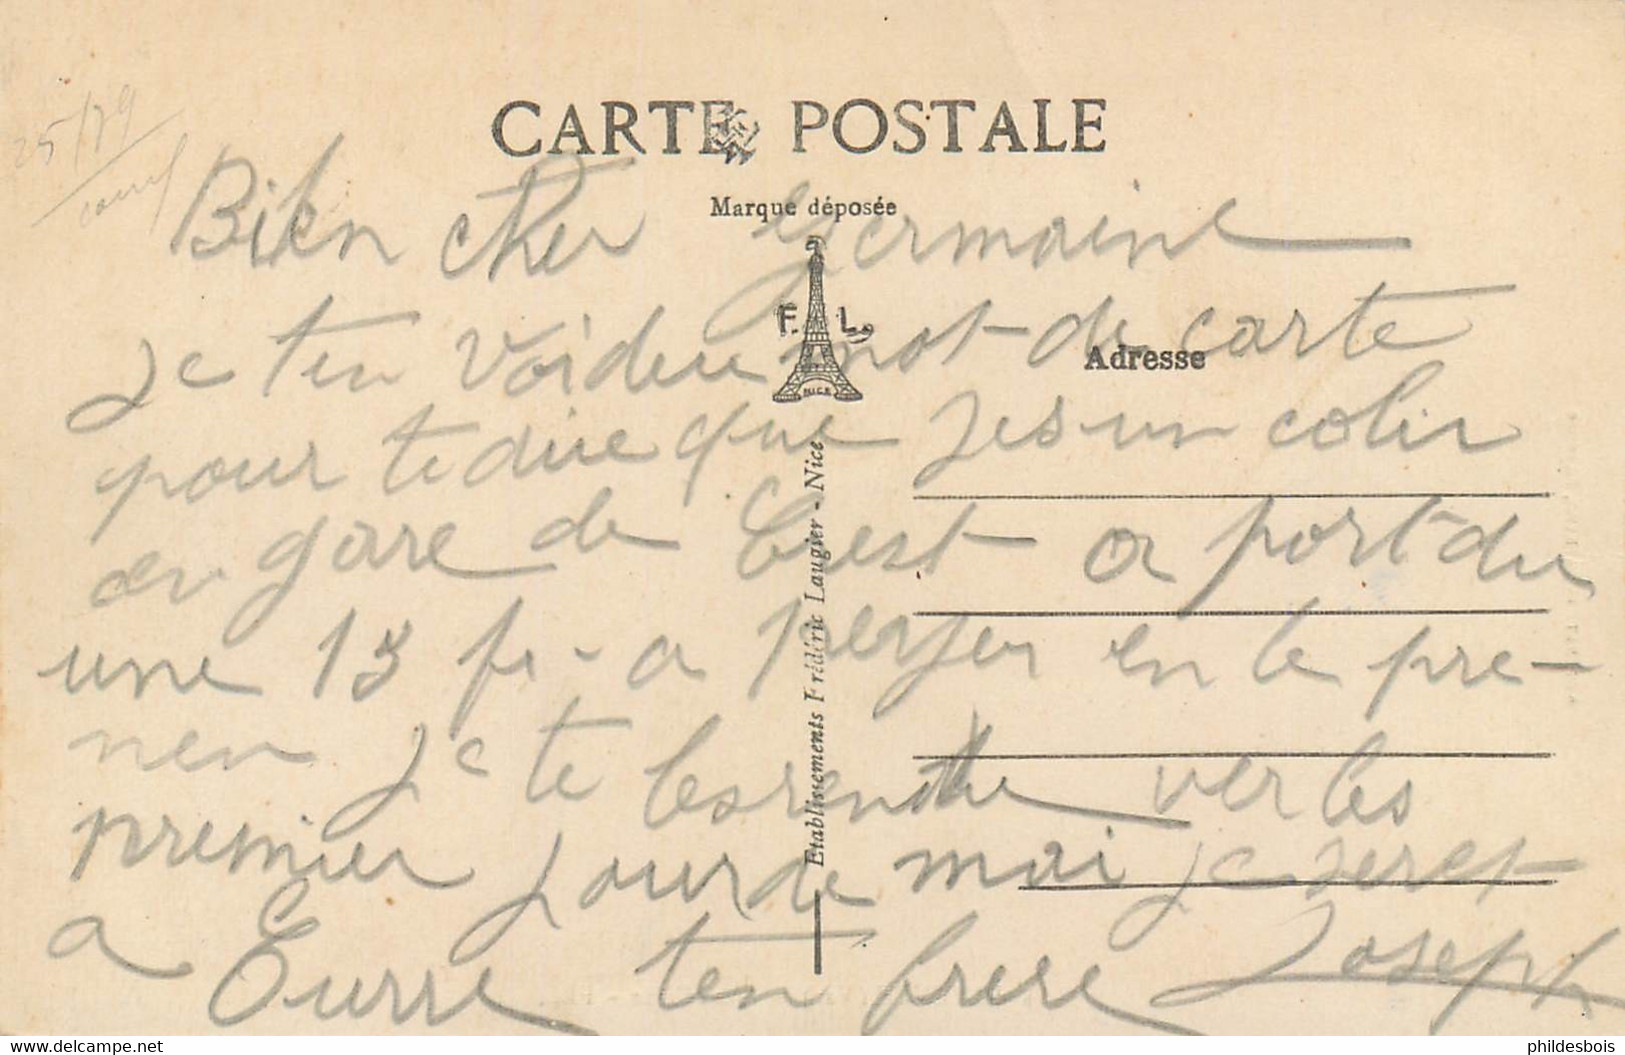 25/79
CARTE POSTALE
Bien cher Germaine
Marque déposée
F. L.
NICE
Adresse
je ten voideu mot de carte
pour te dire que jes un colir
en gare de Crest a port du
une 15 fr - a perjeu en le pre-
nen je te les rendre ver les
premier jour de mai je seret
a Eurre ten frere Joseph
Etablissements Frédéric Laugier - Nice
delcampe.net
phildesbois